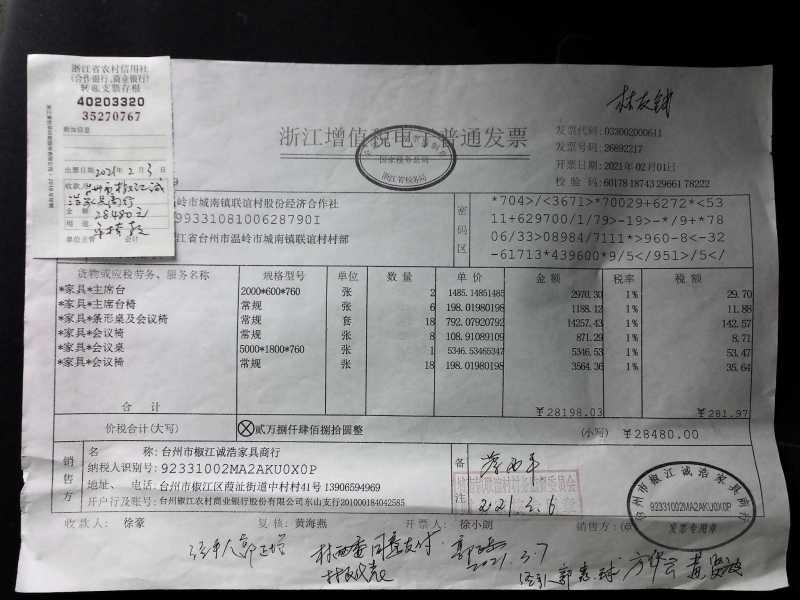 浙江省农村信用社
(合作银行、商业银行)
转账支票存根
40203320
35270767
附加信息
出票日期 2021年2月3日
收款人:
台州市椒江诚
浩家具商行
金 额: 28480元
用 途:
单位主管 会计
浙江增值税电子普通发票
国家税务总局
浙江省税务局
发票代码: 033002000611
发票号码: 36892217
开票日期: 2021年02月01日
校 验 码: 60178 18743 29661 78222
岭市城南镇联谊村股份经济合作社
99331081006287901
江省台州市温岭市城南镇联谊村村部
密码区
*704>/<3671>*70029+6272*<53
11+629700/1/79>-19>-*/9+*78
06/33>08984/7111*>960-8<-32
-61713*439600*9/5</951>/5</
货物或应税劳务、服务名称 规格型号 单位 数 量 单 价 金 额 税率 税 额
*家具*主席台 2000*600*760 张 2 1485.14851485 2970.30 1% 29.70
*家具*主席台椅 常规 张 6 198.01980198 1188.12 1% 11.88
*家具*条形桌及会议椅 常规 套 18 792.07920792 14257.43 1% 142.57
*家具*会议椅 常规 张 8 108.91089109 871.29 1% 8.71
*家具*会议桌 5000*1800*760 张 1 5346.53465347 5346.53 1% 53.47
*家具*会议椅 常规 张 18 198.01980198 3564.36 1% 35.64
合 计 ¥28198.03 ¥281.97
价税合计(大写) 贰万捌仟肆佰捌拾圆整 (小写) ¥28480.00
销售方
名 称: 台州市椒江诚浩家具商行
纳税人识别号: 92331002MA2AKU0X0P
地址、 电话: 台州市椒江区葭沚街道中村村41号 13906594969
开户行及账号: 台州椒江农村商业银行股份有限公司东山支行201000184042585
备注
2021.3.6
台州市椒江诚浩家具商行
92331002MA2AKU0X0P
发票专用章
收款人: 徐豪 复核: 黄海燕 开票人: 徐小剑 销售方: (章)
经手人
同意支付
2021.3.7